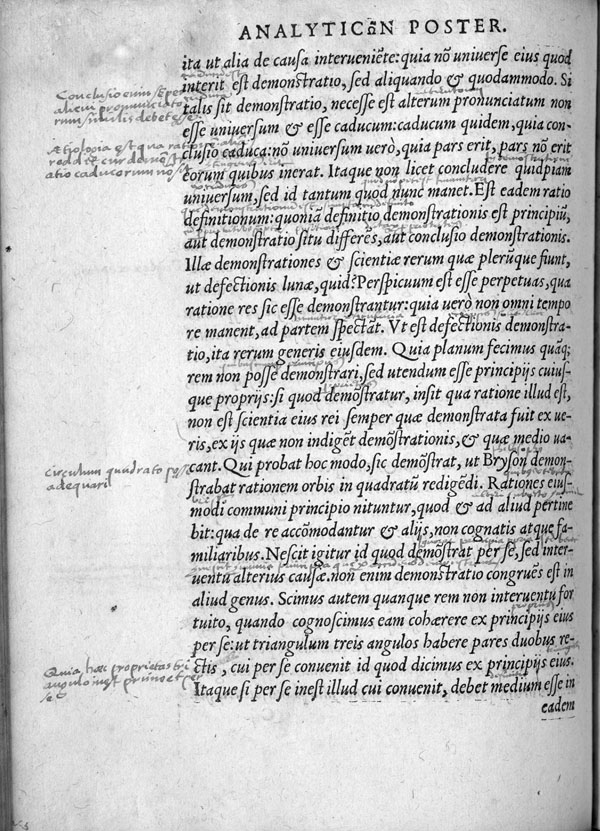 ANALYTICῶN POSTER.
ita ut alia de causa interveniẽte: quia nõ universe eius quod
interit est demonstratio, sed aliquando & quodammodo. Si
talis sit demonstratio, necesse est alterum pronunciatum non
esse universum & esse caducum: caducum quidem, quia con-
clusio caduca: nõ universum uerò, quia pars erit, pars nõ erit
eorum quibus inerat. Itaque non licet concludere quidpiam
universum, sed id tantum quod nunc manet. Est eadem ratio
definitionum: quoniã definitio demonstrationis est principiũ,
aut demonstratio situ differẽs, aut conclusio demonstrationis.
Illæ demonstrationes & scientiæ rerum quæ plerũque fiunt,
ut defectionis lunæ, quid? Perspicuum est esse perpetuas, qua
ratione res sic esse demonstrantur: quia uerò non omni tempo
re manent, ad partem spectãt. Vt est defectionis demonstra-
tio, ita rerum generis eiusdem. Quia planum fecimus quãq;
rem non posse demonstrari, sed utendum esse principijs cuius-
que proprijs: si quod demõstratur, insit qua ratione illud est,
non est scientia eius rei semper quæ demonstrata fuit ex ue-
ris, ex ijs quæ non indigẽt demõstrationis, & quæ medio ua-
cant. Qui probat hoc modo, sic demõstrat, ut Bryson demon-
circulum quadrato
adequari
strabat rationem orbis in quadratũ redigẽdi. Rationes eius-
modi communi principio nituntur, quod & ad aliud pertine
bit: qua de re accõmodantur & alijs, non cognatis atque fa-
miliaribus. Nescit igitur id quod demõstrat per se, sed inter-
uentu alterius causæ. non enim demonstratio congruẽs est in
aliud genus. Scimus autem quanque rem non interuentu for
tuito, quando cognoscimus eam cohærere ex principijs eius
per se: ut triangulum treis angulos habere pares duobus re-
Quia hæc proprietas tri
angulo inest primo et per
se
ctis, cui per se conuenit id quod dicimus ex principijs eius.
Itaque si per se inest illud cui conuenit, debet medium esse in
eadem